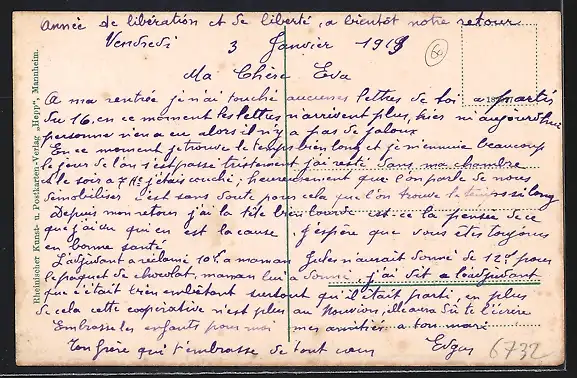 année de libération et de liberté, a bientôt notre retour
Vendredi 3 Janvier 1919
6
Ma Chère Eva
A ma rentrée je n'ai touché aucunes lettres de toi a partir
du 16, en ce moment les lettres n'arrivent plus, hier ni aujourd'hui
personne n'en a eu alors il n'y a pas de jaloux
En ce moment je trouve le temps bien long et je m'ennuie beaucoup
le jour de l'an s'est passé tristement j'ai resté dans ma chambre
et le soir a 7 Hs j'étais couché; heureusement que l'on parle de nous
démobiliser c'est sans doute pour cela que l'on trouve le temps si long
Depuis mon retour j'ai la tête bien lourde est-ce la pensée de ce
que j'ai du qui en est la cause j'espère que vous êtes toujours
en bonne santé
L'adjudant a réclamé 10f a maman Jules n'aurait donné de 12f pour
le paquet de chocolat, maman lui a donné, j'ai dit a l'adjudant
que c'était bien embêtant surtout qu'il était parti, en plus
de cela cette coopérative n'est plus au Nouvion, te l'écrire
Embrasse les enfants pour moi mes amitiés a ton mari
Ton frère qui t'embrasse de tout cœur Edgar
6732
Rheinischer Kunst- u. Postkarten-Verlag „Hepp", Mannheim.